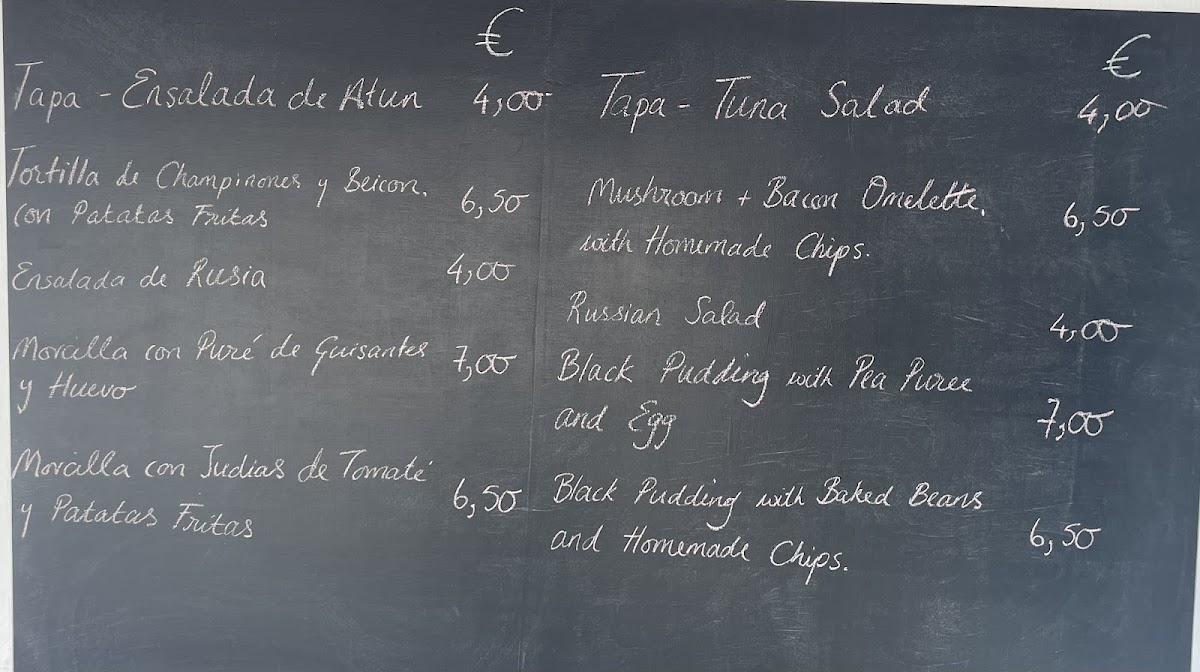 €
Tapa - Ensalada de Atun 4,00
Tortilla de Champinones y Beicon.
con Patatas Fritas 6,50
Ensalada de Rusia 4,00
Morcilla con Puré de Guisantes
y Huevo 7,00
Morcilla con Judias de Tomaté
y Patatas Fritas 6,50
€
Tapa - Tuna Salad 4,00
Mushroom + Bacon Omelette.
with Homemade Chips. 6,50
Russian Salad 4,00
Black Pudding with Pea Puree
and Egg 7,00
Black Pudding with Baked Beans
and Homemade Chips. 6,50